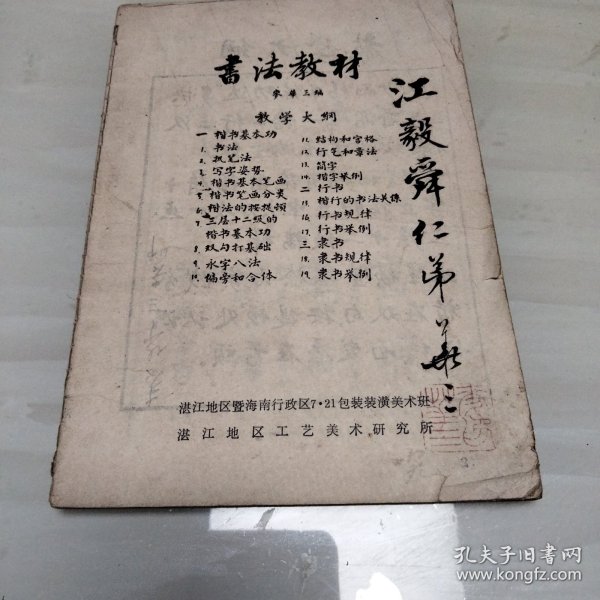 書法教材
麥華三編
教学大綱
一 楷书基本功
1. 书法
2. 执笔法
3. 写字姿势
4. 楷书基本笔画
5. 楷书笔画分类
6. 楷法的按提顿
7. 三层十二级的
楷书基本功
8. 双勾打基础
9. 永字八法
10. 偏旁和合体
11. 结构和宫格
12. 行气和章法
13. 简字
14. 楷字举例
二 行书
15. 楷行的书法关系
16. 行书规律
17. 行书举例
三 隶书
18. 隶书规律
19. 隶书举例
江毅舜仁弟 華三
湛江地区暨海南行政区7·21包装装潢美术班
湛江地区工艺美术研究所
孔夫子旧书网
www.kongfz.com